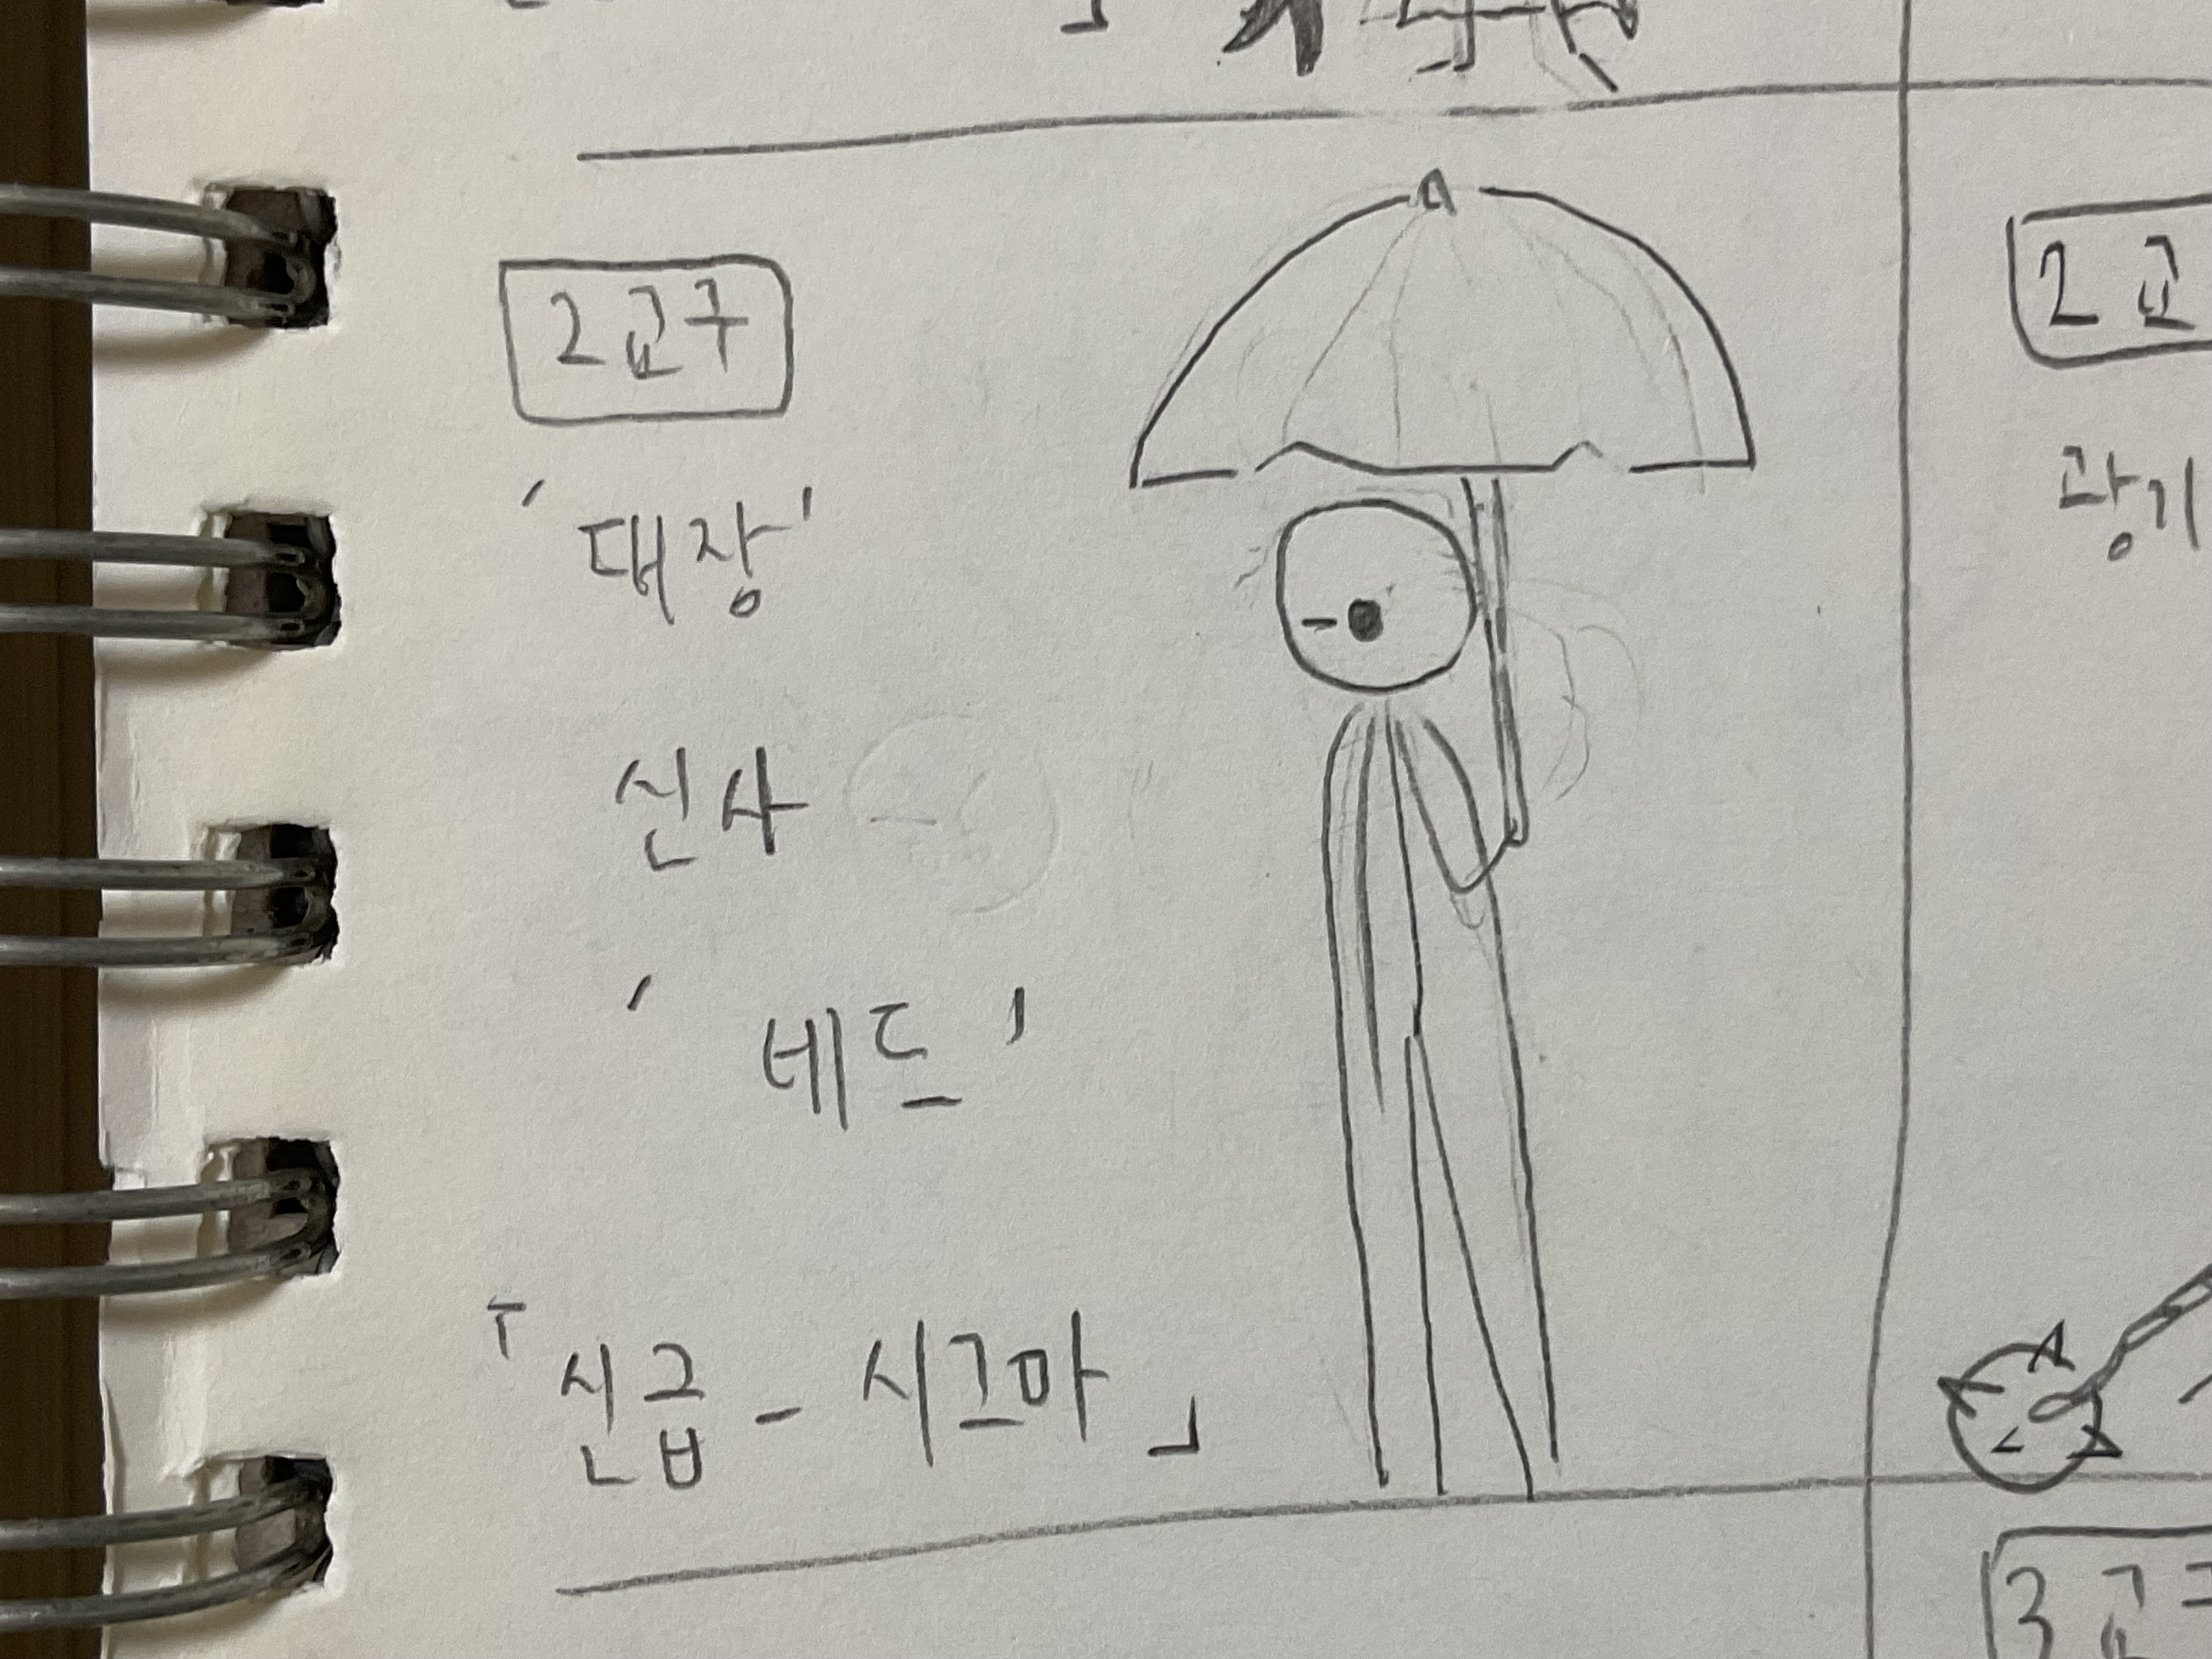 2교구
'대장'
신사
'네드'
「신급-시그마」
2교
광기
3교구